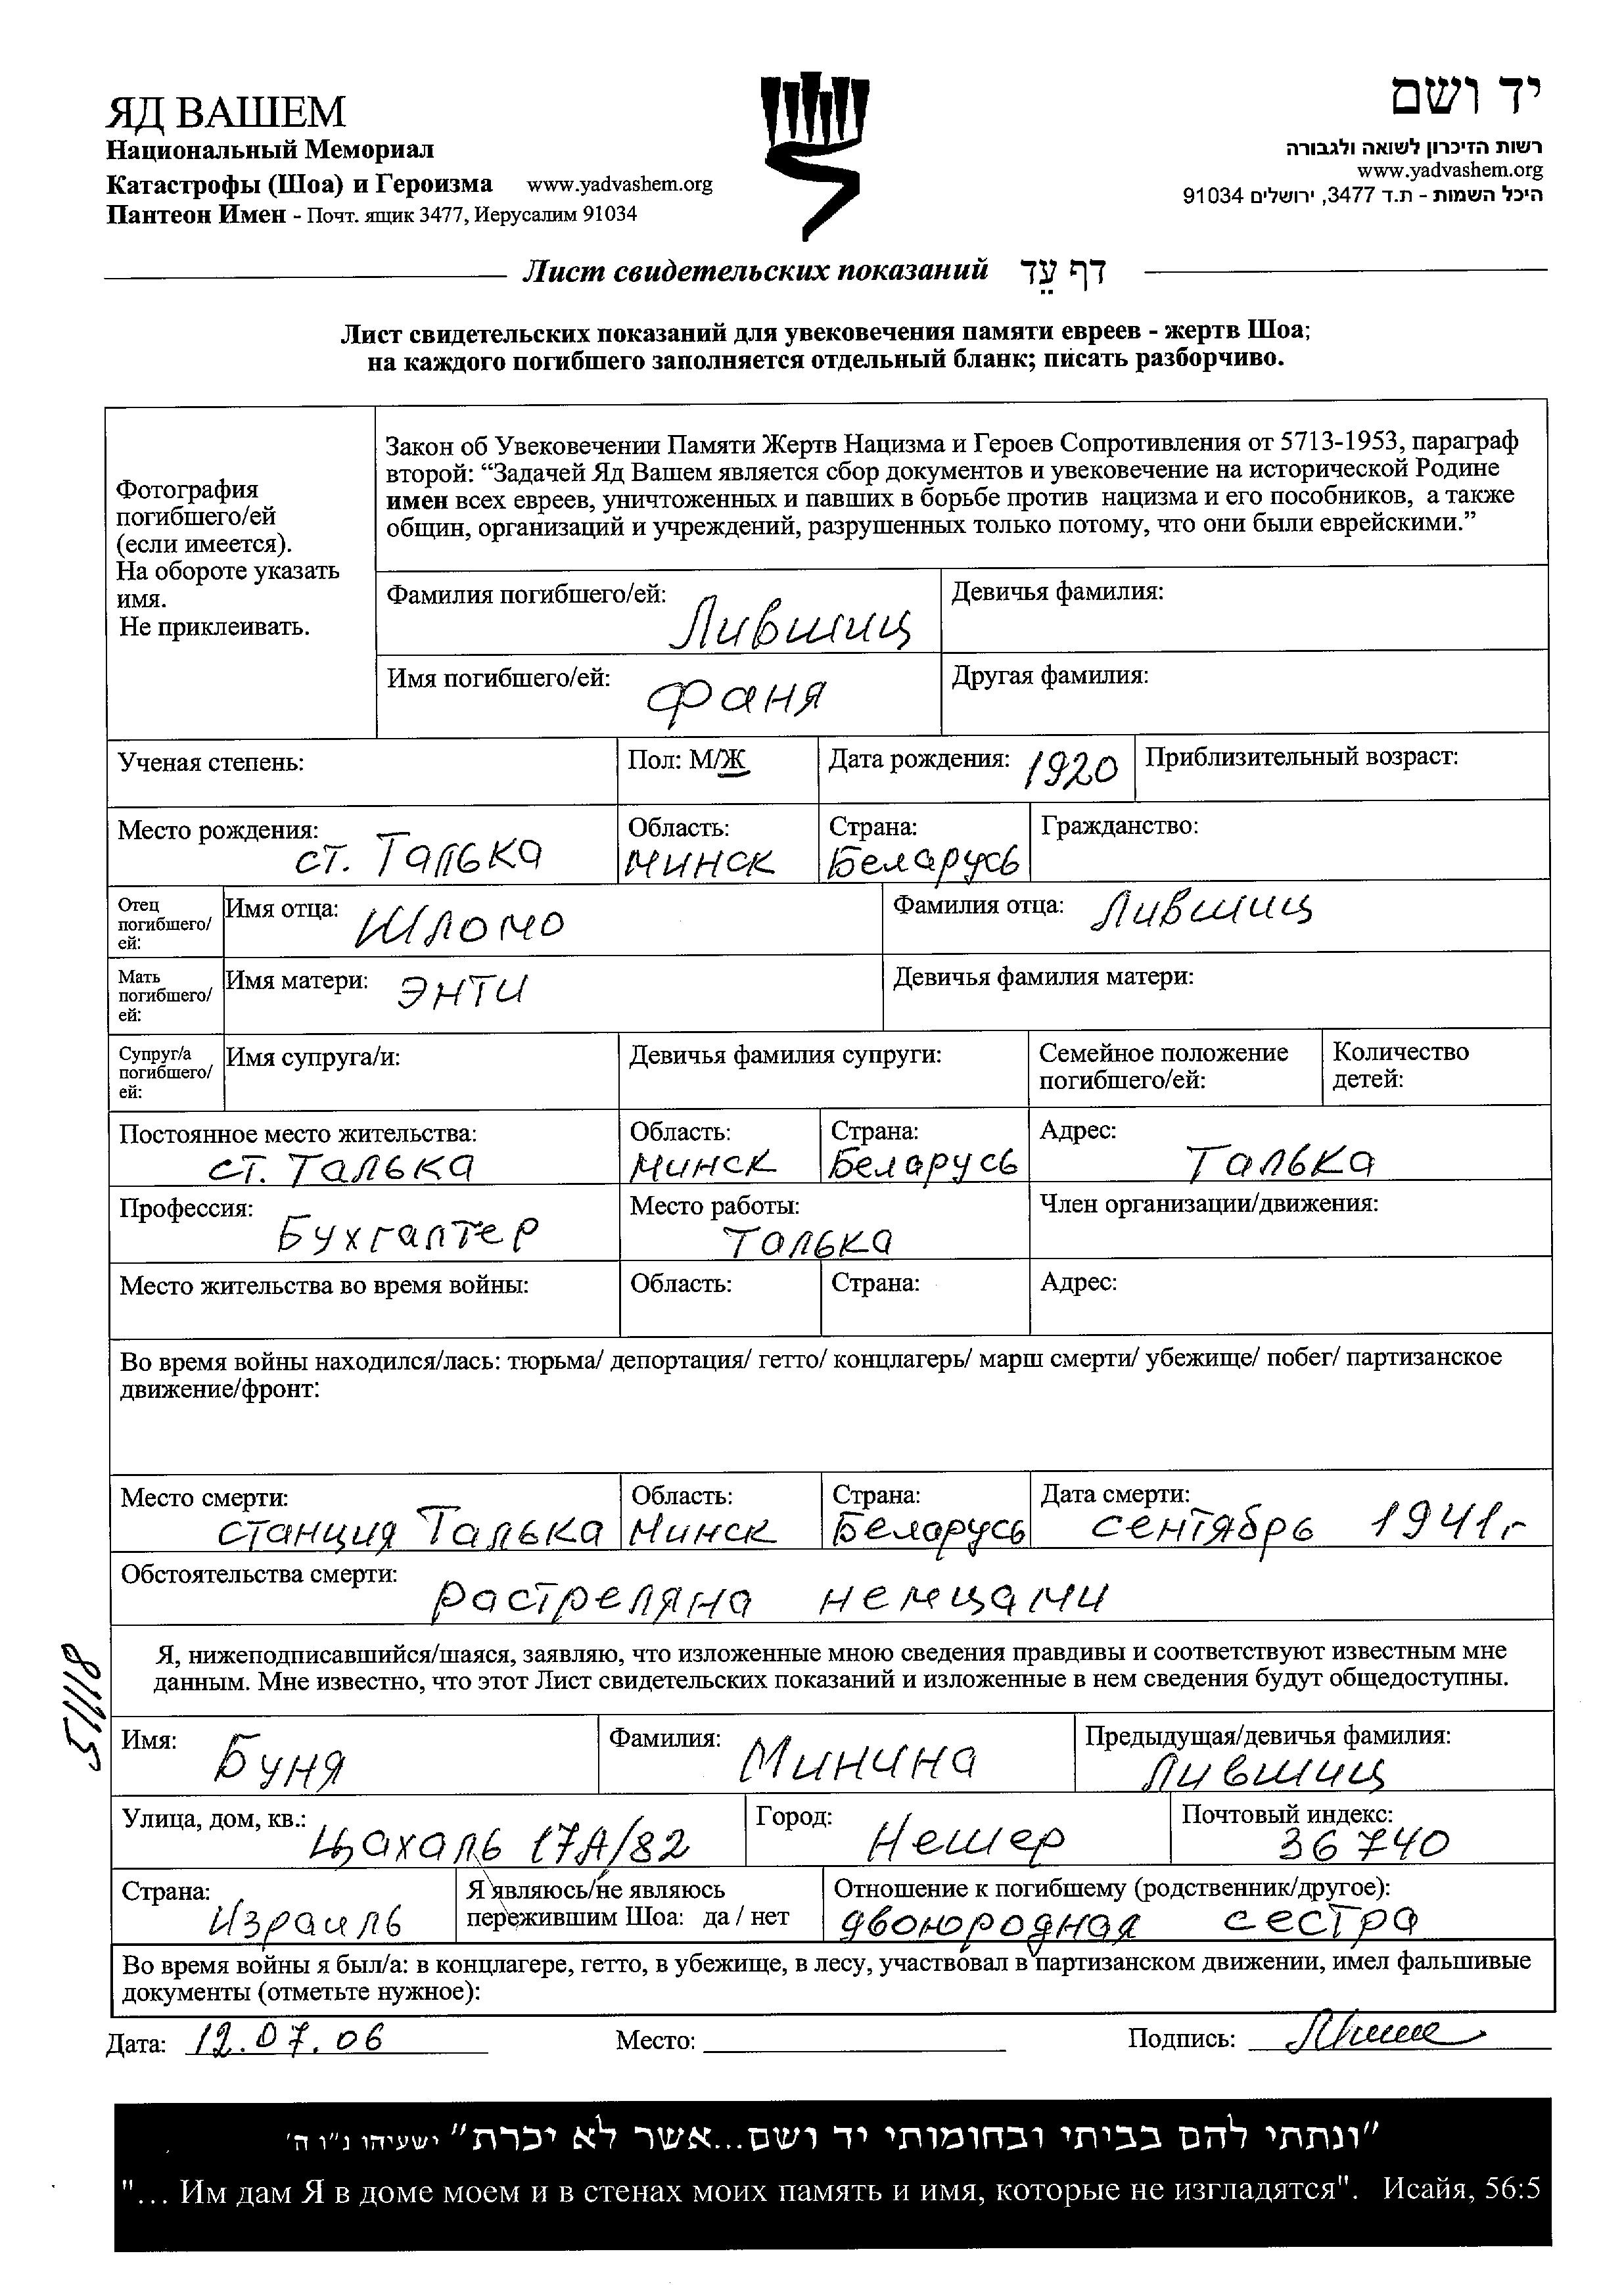 ЯД ВАШЕМ
Национальный Мемориал
Катастрофы (Шоа) и Героизма www.yadvashem.org
Пантеон Имен - Почт. ящик 3477, Иерусалим 91034
יד ושם
רשות הזיכרון לשואה ולגבורה
www.yadvashem.org
היכל השמות - ת.ד 3477, ירושלים 91034
Лист свидетельских показаний דף עֵד
Лист свидетельских показаний для увековечения памяти евреев - жертв Шоа;
на каждого погибшего заполняется отдельный бланк; писать разборчиво.
Фотография
погибшего/ей
(если имеется).
На обороте указать
имя.
Не приклеивать.
Закон об Увековечении Памяти Жертв Нацизма и Героев Сопротивления от 5713-1953, параграф
второй: “Задачей Яд Вашем является сбор документов и увековечение на исторической Родине
имен всех евреев, уничтоженных и павших в борьбе против нацизма и его пособников, а также
общин, организаций и учреждений, разрушенных только потому, что они были еврейскими.”
Фамилия погибшего/ей: Лившиц Девичья фамилия:
Имя погибшего/ей: Фаня Другая фамилия:
Ученая степень: Пол: М/Ж Дата рождения: 1920 Приблизительный возраст:
Место рождения: ст. Талька Область: Минск Страна: Беларусь Гражданство:
Отец
погибшего/
ей:
Имя отца: Шломо Фамилия отца: Лившиц
Мать
погибшего/
ей:
Имя матери: Энти Девичья фамилия матери:
Супруг/а
погибшего/
ей:
Имя супруга/и: Девичья фамилия супруги: Семейное положение
погибшего/ей:
Количество
детей:
Постоянное место жительства: ст. Талька Область: Минск Страна: Беларусь Адрес: Талька
Профессия: Бухгалтер Место работы: Талька Член организации/движения:
Место жительства во время войны: Область: Страна: Адрес:
Во время войны находился/лась: тюрьма/ депортация/ гетто/ концлагерь/ марш смерти/ убежище/ побег/ партизанское
движение/фронт:
Место смерти: станция Талька Область: Минск Страна: Беларусь Дата смерти: сентябрь 1941г
Обстоятельства смерти: растреляна немцами
Я, нижеподписавшийся/шаяся, заявляю, что изложенные мною сведения правдивы и соответствуют известным мне
данным. Мне известно, что этот Лист свидетельских показаний и изложенные в нем сведения будут общедоступны.
Имя: Буня Фамилия: Минина Предыдущая/девичья фамилия: Лившиц
Улица, дом, кв.: Цахаль 17А/82 Город: Нешер Почтовый индекс: 36740
Страна: Израиль Я являюсь/не являюсь
пережившим Шоа: да / нет
Отношение к погибшему (родственник/другое):
двоюродная сестра
Во время войны я был/а: в концлагере, гетто, в убежище, в лесу, участвовал в партизанском движении, имел фальшивые
документы (отметьте нужное):
Дата: 12.07.06 Место: Подпись:
"ונתתי להם בביתי ובחומותי יד ושם...אשר לא יכרת" ישעיהו נ"ו ה'
"... Им дам Я в доме моем и в стенах моих память и имя, которые не изгладятся". Исайя, 56:5